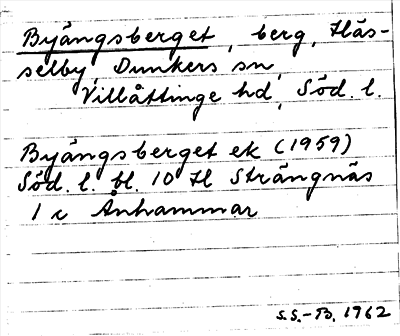 Byängsberget, berg, Häs-
selby, Dunkers sn,
Villåttinge hd, Söd. l.
Byängsberget ek (1959)
Söd. l. bl. 10 H Strängnäs
1 c Änhammar
S.S.-B. 1962